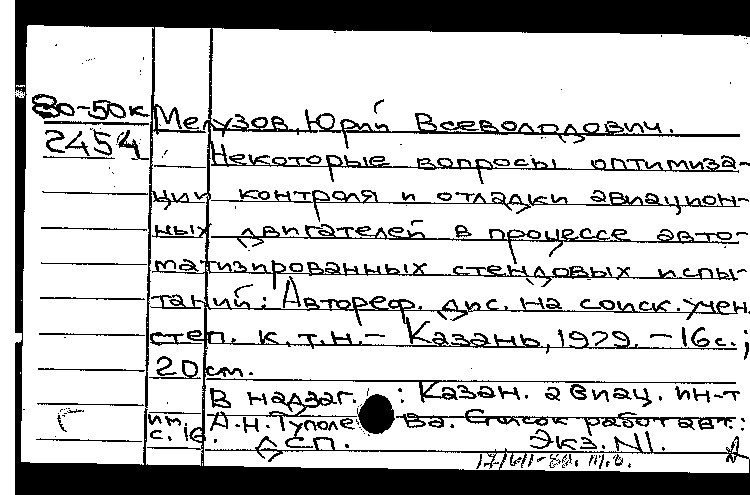 80-50к
2454
Мелузов, Юрий Всеволодович.
Некоторые вопросы оптимиза-
ции контроля и отладки авиацион-
ных двигателей в процессе авто-
матизированных стендовых испы-
таний: Автореф. дис. на соиск. учен.
степ. к.т.н. – Казань, 1979. – 16 с.;
20 см.
В надзаг.: Казан. авиац. ин-т
А.Н. Туполева. Список работ авт.:
с. 16.
ДСП. Экз. N1.